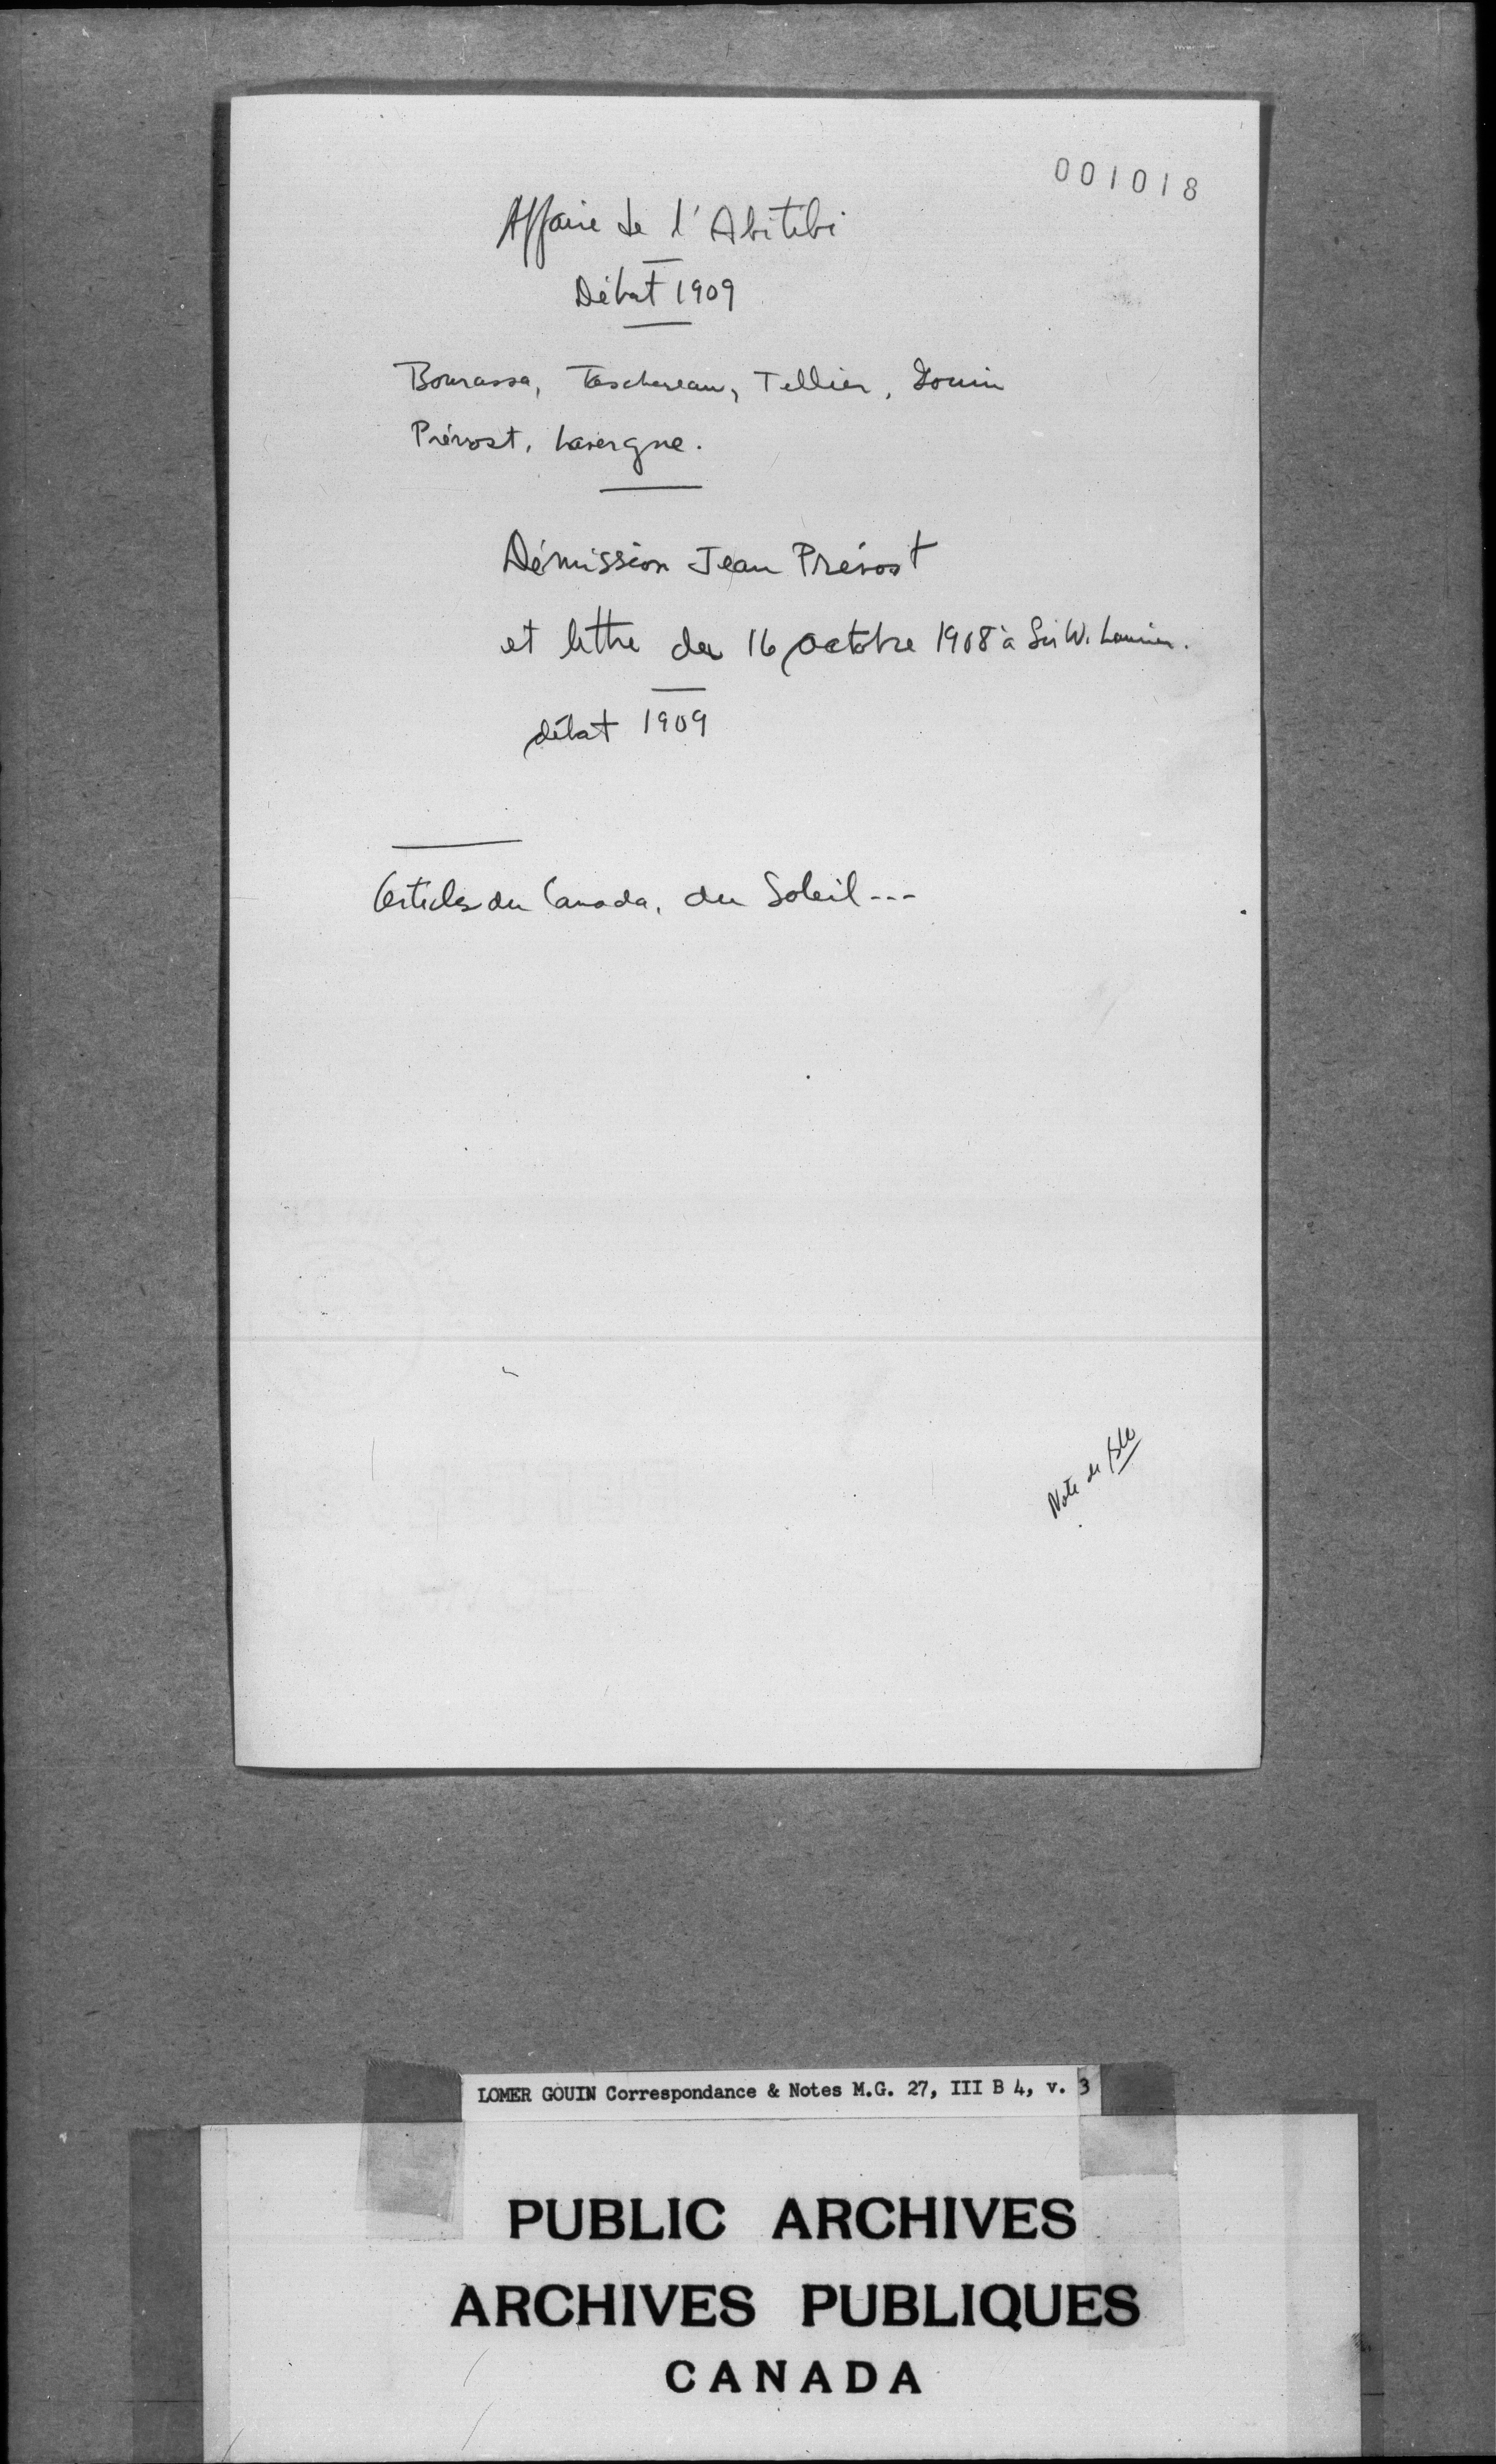 001018
Affaire de l'Abitibi
Débat 1909
Bourassa, Taschereau, Tellier, Gouin
Prévost, Lavergne.
Démission Jean Prévost
et lettre du 16 octobre 1908 à Sir W. Laurier.
débat 1909
Articles du Canada, du Soleil---
Note de
LOMER GOUIN Correspondance & Notes M.G. 27, III B 4, v. 3
PUBLIC ARCHIVES
ARCHIVES PUBLIQUES
CANADA